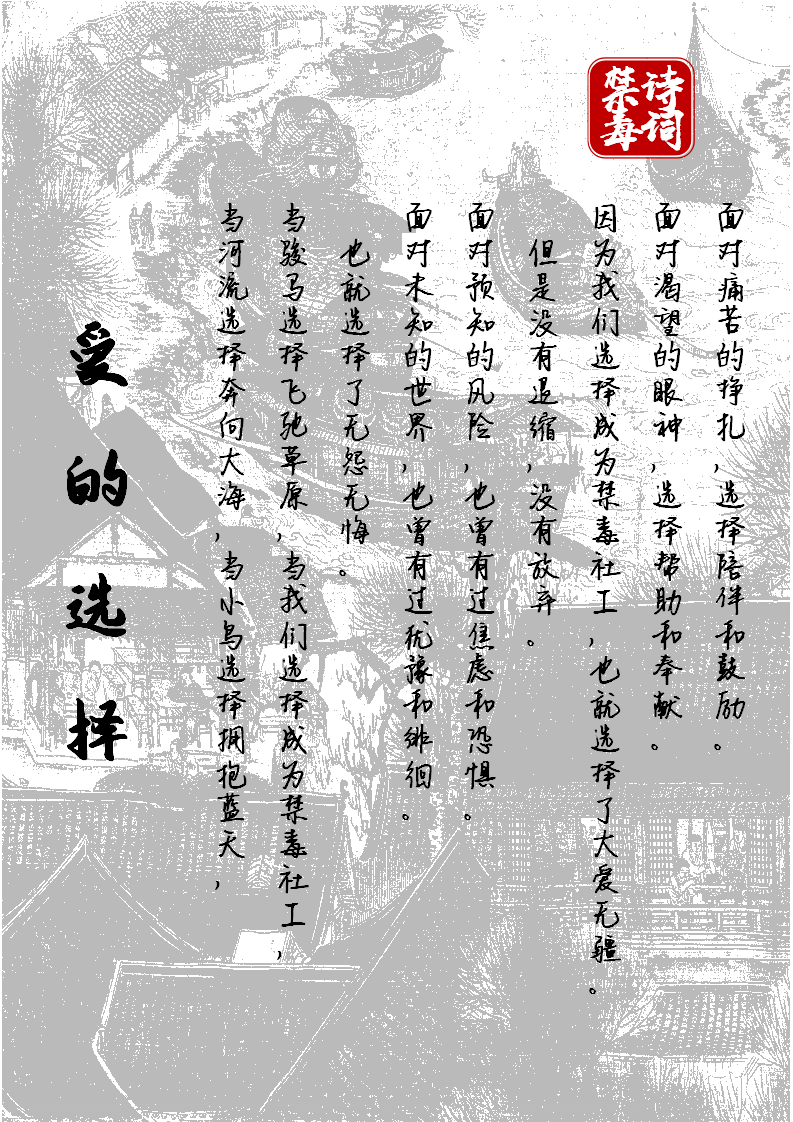 禁毒
诗词
爱的选择
当河流选择奔向大海，当小鸟选择拥抱蓝天，
当骏马选择飞驰草原，当我们选择成为禁毒社工，
也就选择了无怨无悔。
面对未知的世界，也曾有过犹豫和绯徊。
面对预知的风险，也曾有过焦虑和恐惧。
但是没有退缩，没有放弃。
因为我们选择成为禁毒社工，也就选择了大爱无疆。
面对渴望的眼神，选择帮助和奉献。
面对痛苦的挣扎，选择陪伴和鼓励。